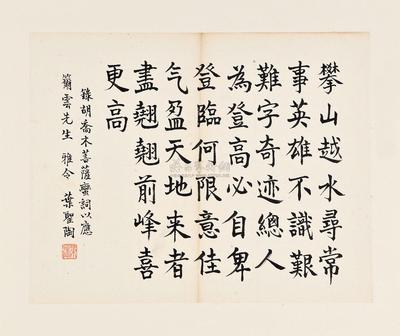 攀山越水尋常
事英雄不識艱
難字奇迹總人
為登高必自卑
登臨何限意佳
气盈天地来者
盡翹翹前峰喜
更高
錄胡喬木菩薩蠻詞以應
雲先生 雅令 葉聖陶